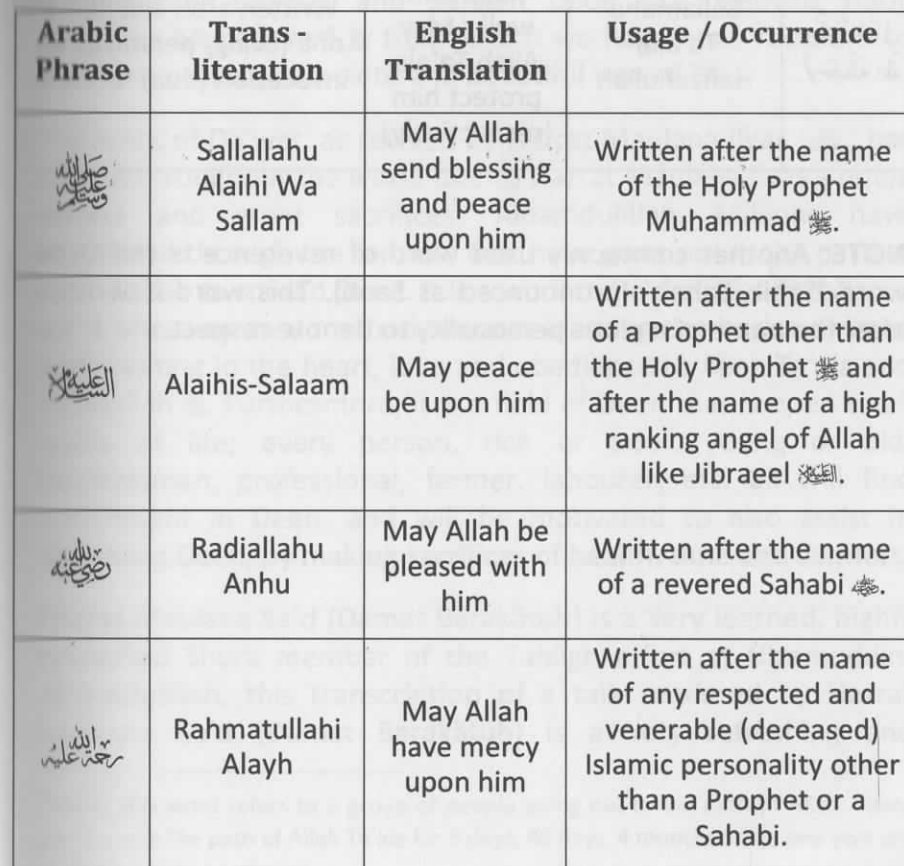 Arabic Phrase
Trans - literation
English Translation
Usage / Occurrence
ﷺ
Sallallahu
Alaihi Wa
Sallam
May Allah
send blessing
and peace
upon him
Written after the name
of the Holy Prophet
Muhammad ﷺ.
عليه السلام
Alaihis-Salaam
May peace
be upon him
Written after the name
of a Prophet other than
the Holy Prophet ﷺ and
after the name of a high
ranking angel of Allah
like Jibraeel عليه السلام.
رضي الله عنه
Radiallahu
Anhu
May Allah be
pleased with
him
Written after the name
of a revered Sahabi رضي الله عنه.
رحمة الله عليه
Rahmatullahi
Alayh
May Allah
have mercy
upon him
Written after the name
of any respected and
venerable (deceased)
Islamic personality other
than a Prophet or a
Sahabi.